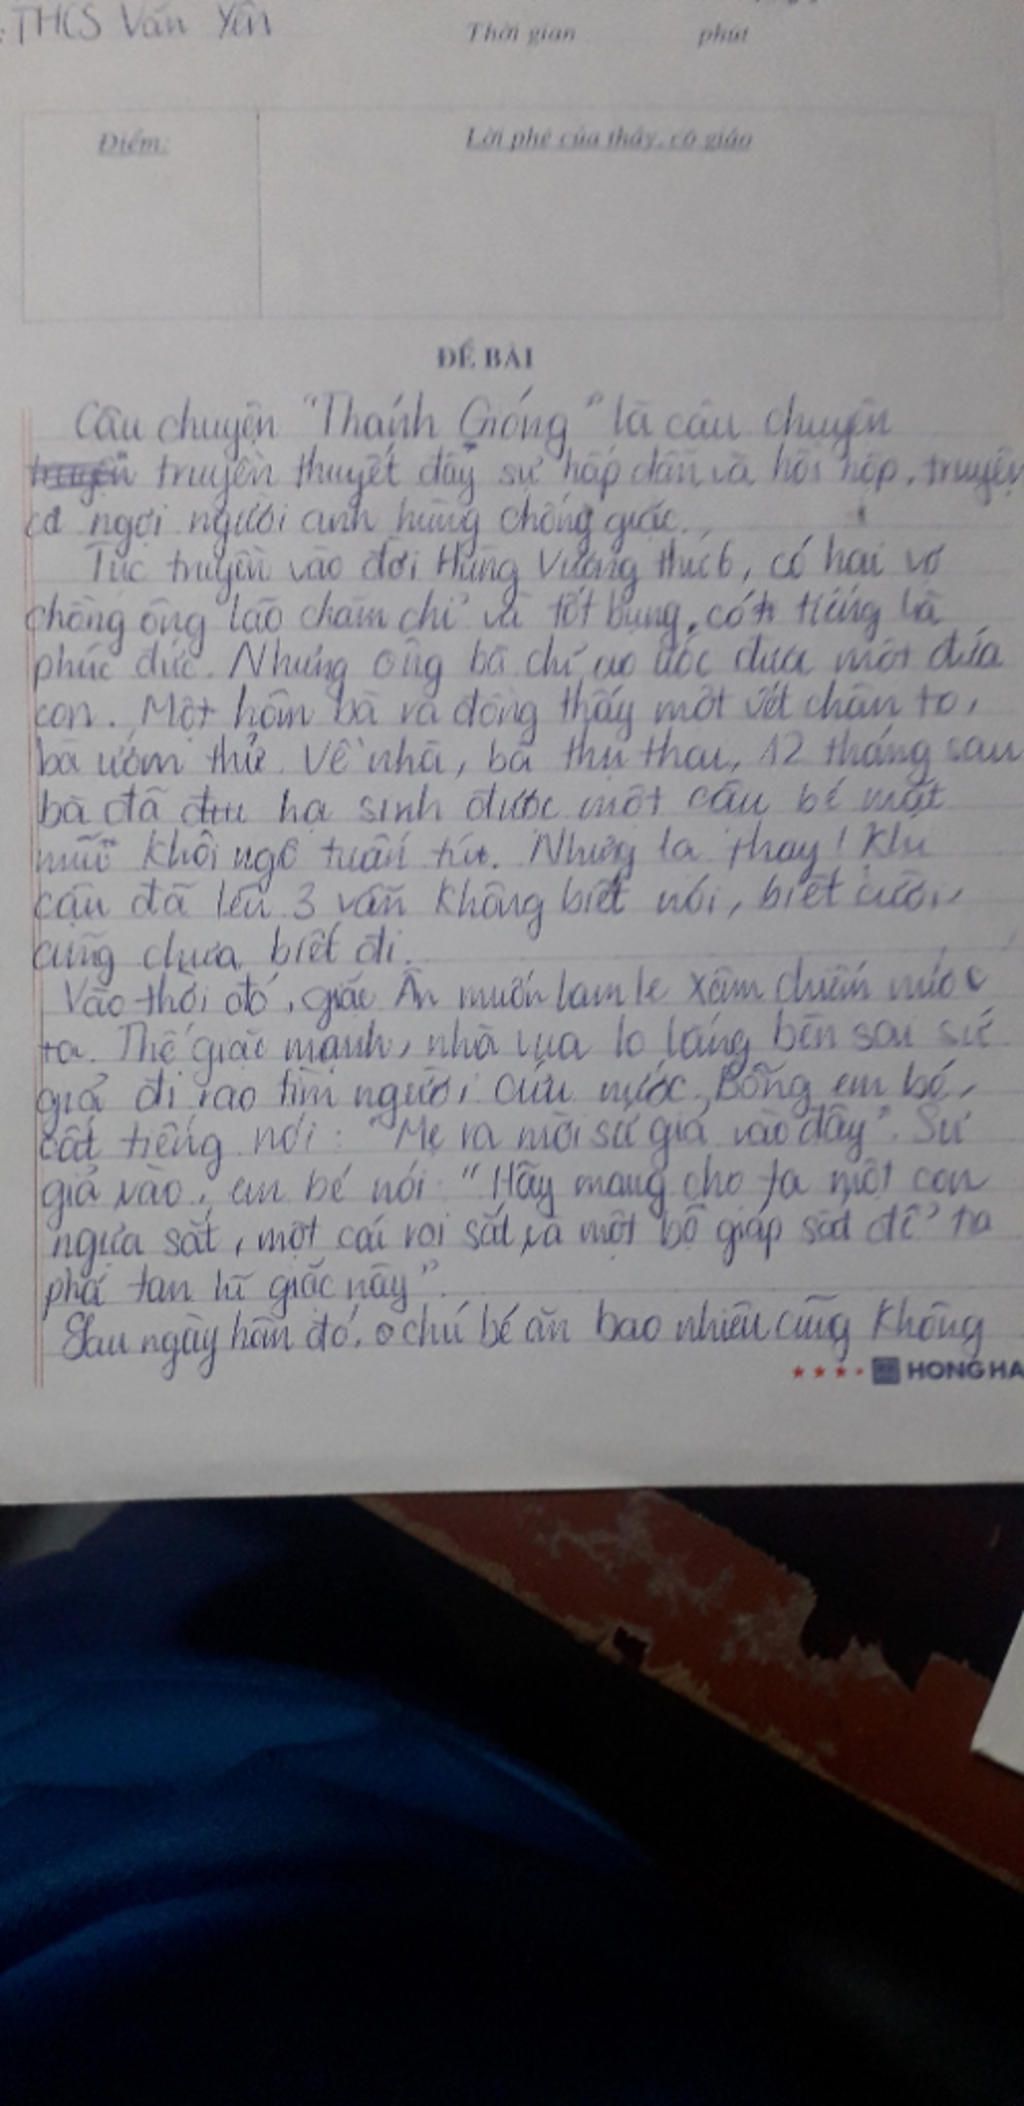 : THCS Văn Yên
Thời gian phút
Điểm:
Lời phê của thầy, cô giáo
ĐỀ BÀI
Câu chuyện "Thánh Gióng" là câu chuyện
truyền thuyết đầy sự hấp dẫn và hồi hộp, truyện
ca ngợi người anh hùng chống giặc.
Tục truyền vào đời Hùng Vương thứ 6, có hai vợ
chồng ông lão chăm chỉ và tốt bụng, có tiếng là
phúc đức. Nhưng ông bà chỉ ao ước đứa một đứa
con. Một hôm bà ra đồng thấy một vết chân to,
bà ướm thử. Về nhà, bà thụ thai, 12 tháng sau
bà đã hạ sinh được một cậu bé mặt
mũi khôi ngô tuấn tú. Nhưng lạ thay! Khi
cậu đã lên 3 vẫn không biết nói, biết cười,
cũng chưa biết đi.
Vào thời đó, giặc Ân muốn lam le xâm chiếm nước
ta. Thế giặc mạnh, nhà vua lo lắng bèn sai sứ
giả đi rao tìm người cứu nước. Bỗng em bé,
cất tiếng nói: "Mẹ ra mời sứ giả vào đây". Sứ
giả vào, em bé nói: "Hãy mang cho ta một con
ngựa sắt, một cái roi sắt và một bộ giáp sắt để ta
phá tan lũ giặc này".
Sau ngày hôm đó, chú bé ăn bao nhiêu cũng không
HONG HA